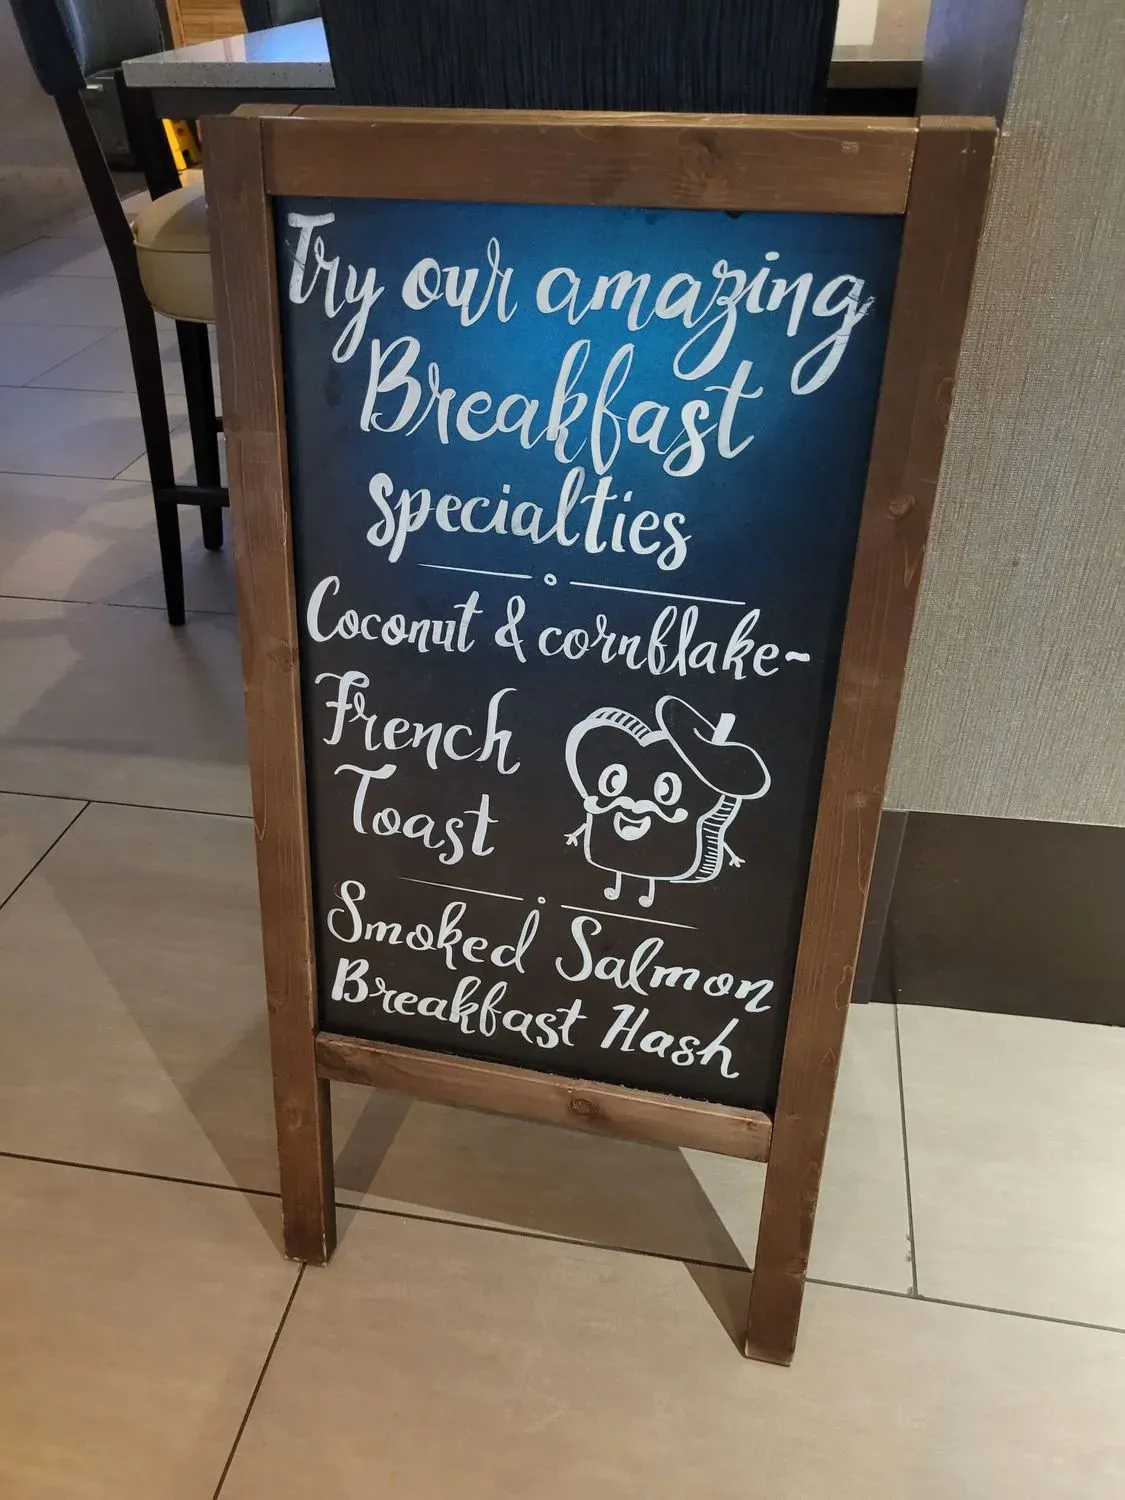 Try our amazing
Breakfast
specialties
Coconut & cornflake-
French
Toast
Smoked Salmon
Breakfast Hash